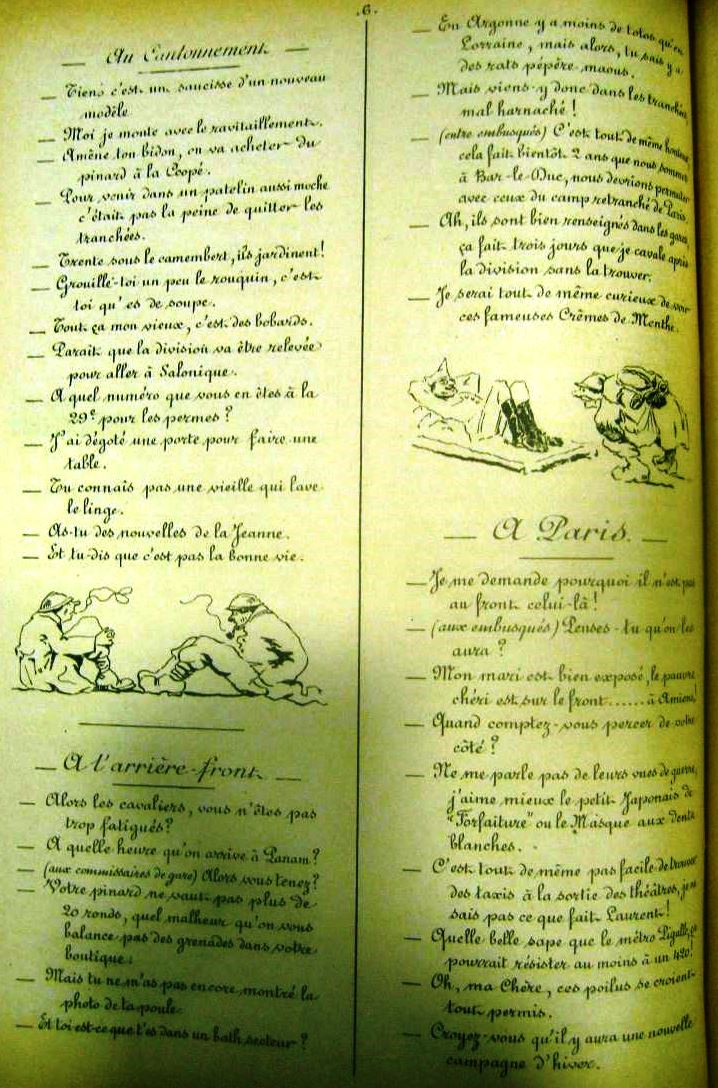 .6.
— Au Cantonnement —
— Tiens c'est un saucisse d'un nouveau
modèle
— Moi je monte avec le ravitaillement.
— Amène ton bidon, on va acheter du
pinard à la Coopé.
— Pour venir dans un patelin aussi moche
c'était pas la peine de quitter les
tranchées.
— Trente sous le camembert, ils jardinent!
— Grouille-toi un peu le rouquin, c'est
toi qu'es de soupe.
— Tout ça mon vieux, c'est des bobards.
— Parait que la division va être relevée
pour aller à Salonique.
— A quel numéro que vous en êtes à la
29e pour les permes?
— J'ai dégoté une porte pour faire une
table.
— Tu connais pas une vieille qui lave
le linge.
— As-tu des nouvelles de la Jeanne.
— Et tu-dis que c'est pas la bonne vie.
— A l'arrière-front —
— Alors les cavaliers, vous n'êtes pas
trop fatigués?
— A quelle heure qu'on arrive à Panam?
— (aux commissaires de gare) Alors vous tenez?
— Votre pinard ne vaut pas plus de
20 ronds, quel malheur qu'on vous
balance pas des grenades dans votre
boutique.
— Mais tu ne m'as pas encore montré la
photo de ta poule
— Et toi est-ce que t'es dans un bath secteur?
— En Argonne y a moins de totos qu'en
Lorraine, mais alors, tu sais y a
des rats pépère-maous.
— Mais viens-y donc dans les tranchées,
mal harnaché!
— (entre embusqués) C'est tout de même honteux
cela fait bientôt 2 ans que nous sommes
à Bar-le-Duc, nous devrions permuter
avec ceux du camp retranché de Paris.
— Ah, ils sont bien renseignés dans les gares,
ça fait trois jours que je cavale après
la division sans la trouver.
— Je serai tout de même curieux de voir
ces fameuses Crêmes de Menthe.
— A Paris. —
— Je me demande pourquoi il n'est pas
au front celui-là!
— (aux embusqués) Penses-tu qu'on les
aura?
— Mon mari est bien exposé, le pauvre
chéri est sur le front...... à Amiens!
— Quand comptez-vous percer de votre
côté?
— Ne me parle pas de leurs vues de guerre,
j'aime mieux le petit Japonais de
"Forfaiture" ou le Masque aux Dents
blanches.
— C'est tout de même pas facile de trouver
des taxis à la sortie des théâtres, je ne
sais pas ce que fait Laurent!
— Quelle belle sape que le métro Pigalle, ça
pourrait résister au moins à un 420!
— Oh, ma Chère, ces poilus se croient
tout permis.
— Croyez-vous qu'il y aura une nouvelle
campagne d'hiver.